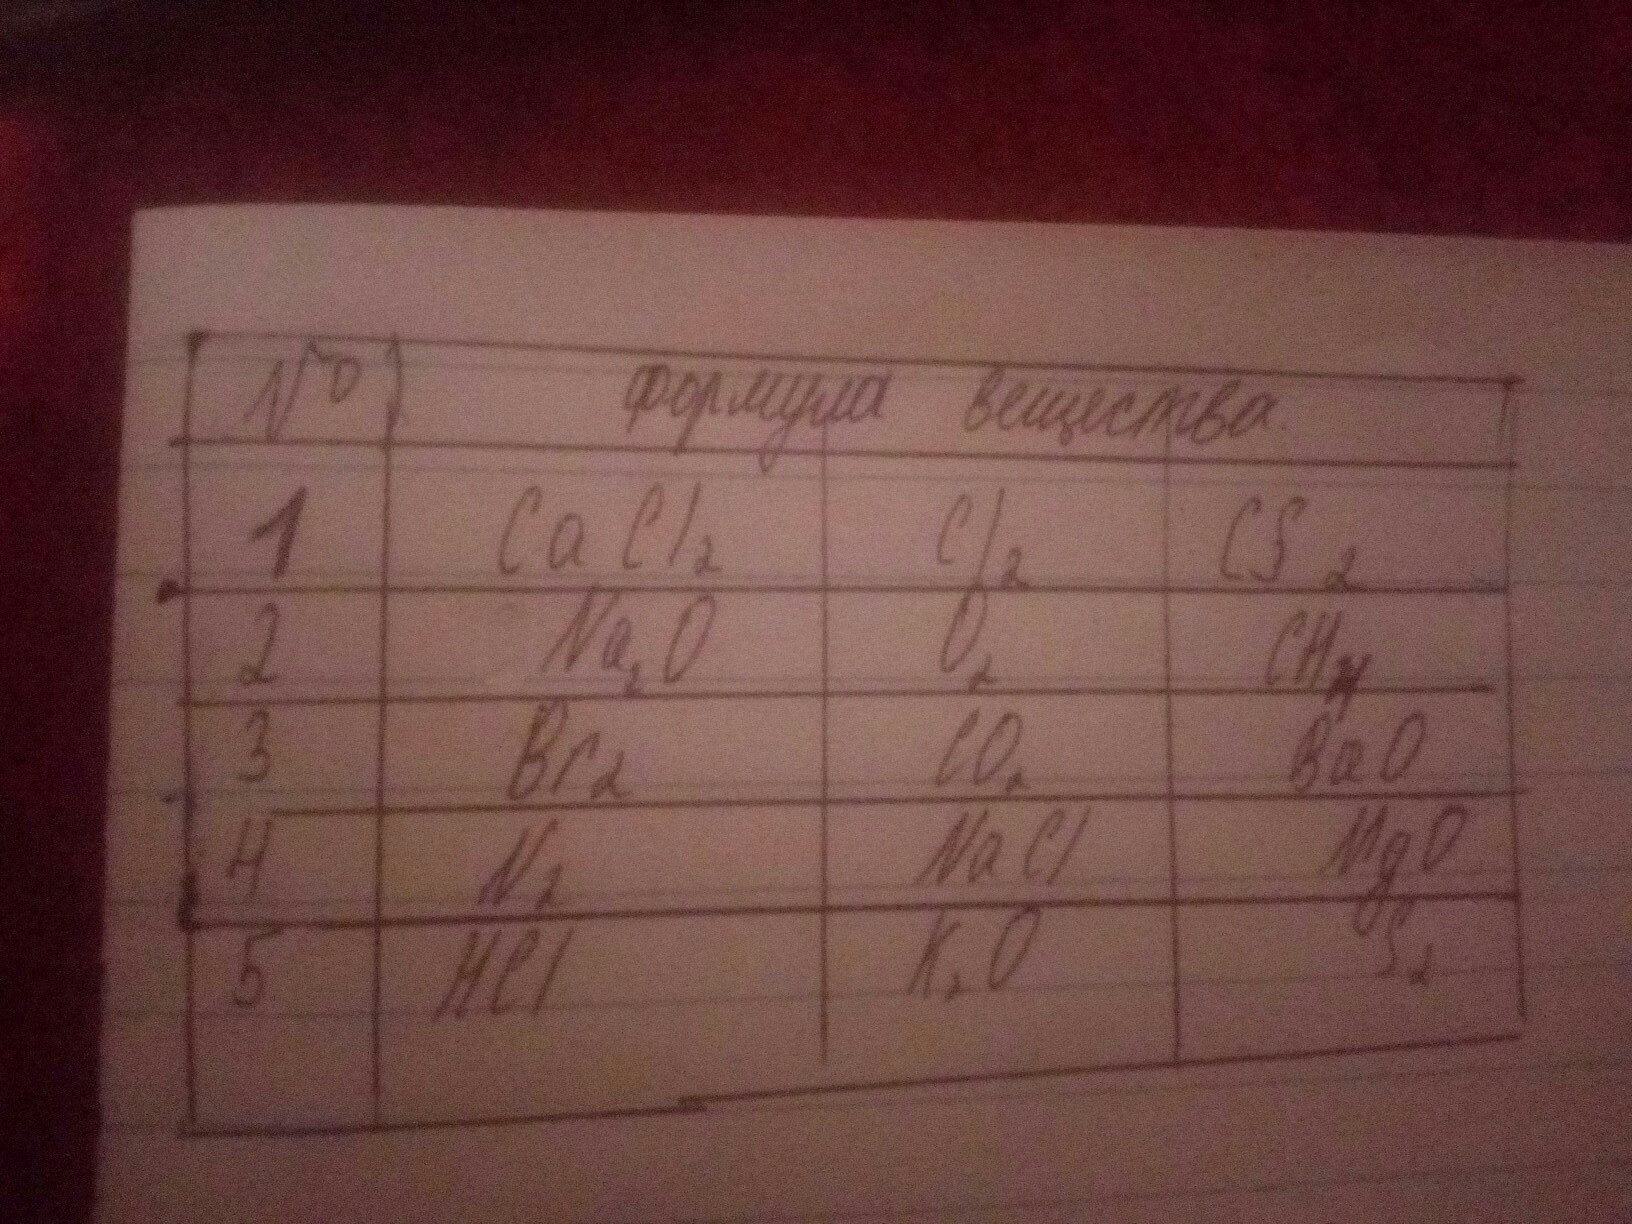 № формула вещества
1 CaCl₂ Cl₂ CS₂
2 Na₂O O₂ CH₄
3 Br₂ CO₂ BaO
4 N₂ NaCl MgO
5 HCl K₂O S₂